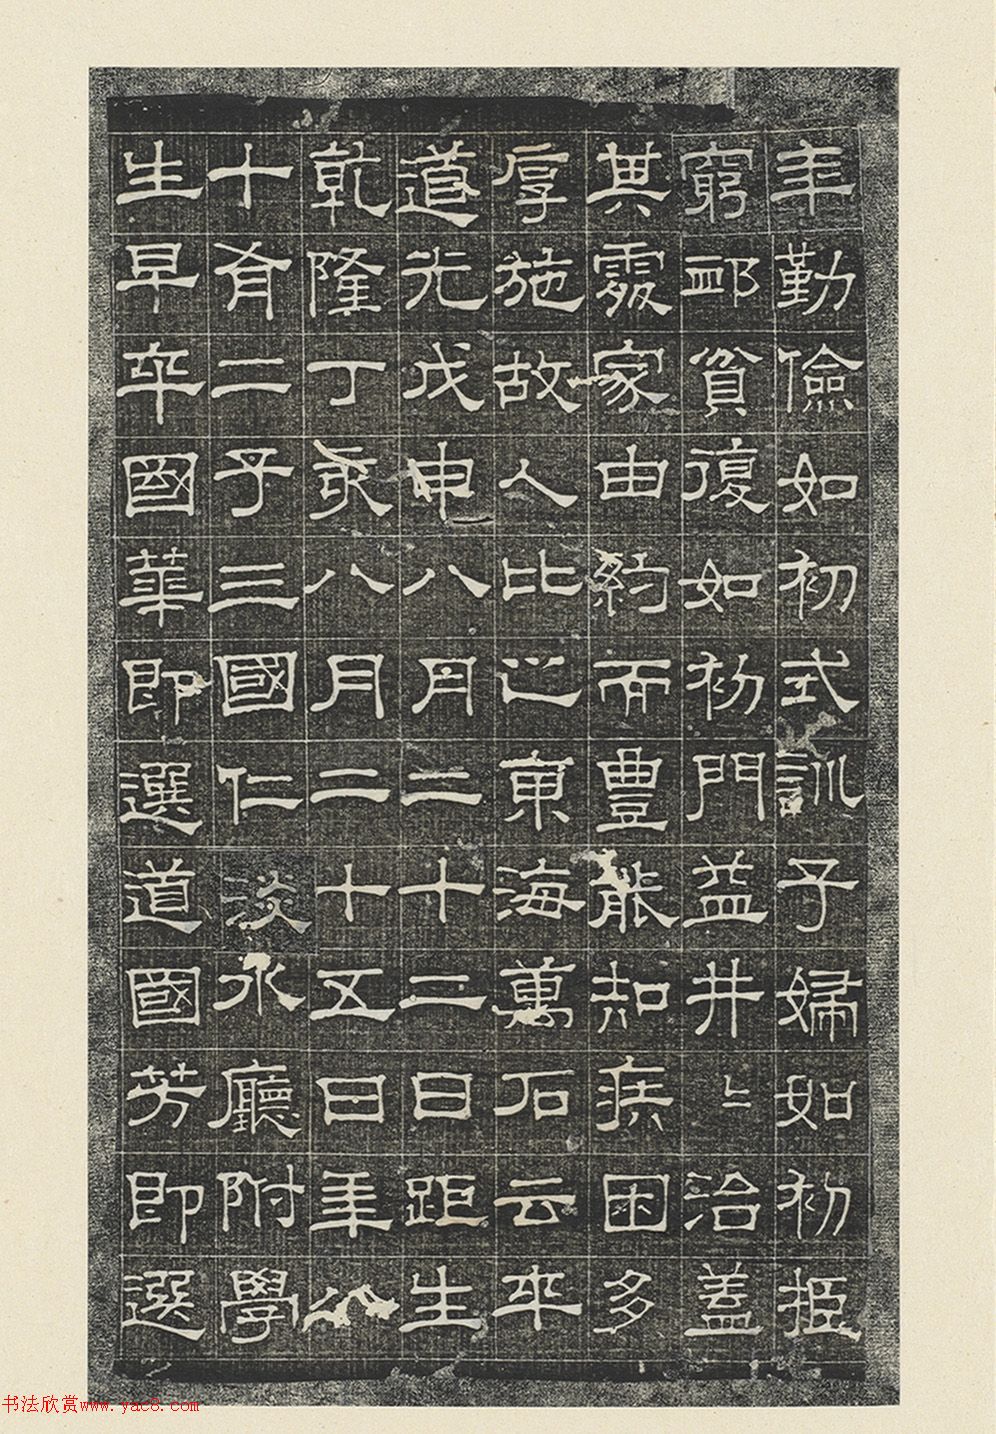 年勤儉如初式訓子婦如初挋
窮䘏貧復如初門益井〻治蓋
其處家由約而豐能知疾困多
厚施故人比之東海萬石云卒
道光戊申八月二十二日距生
乾隆丁亥八月二十五日年八
十有二子三國仁淡水廳附學
生早卒國華即選道國芳即選
书法欣赏www.yac8.com